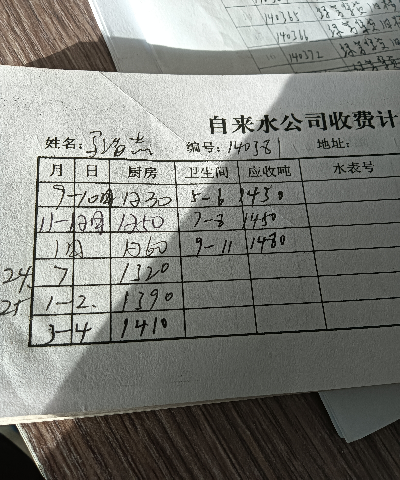 140365
140366
140372
自来水公司收费计
姓名: 编号: 140381 地址:
月 日 厨房 卫生间 应收吨 水表号
9-10月 1230 5-6 1430
11-12月 1250 7-8 1450
1月 1260 9-11 1480
24. 7 1320
25 1-2. 1390
3-4 1410